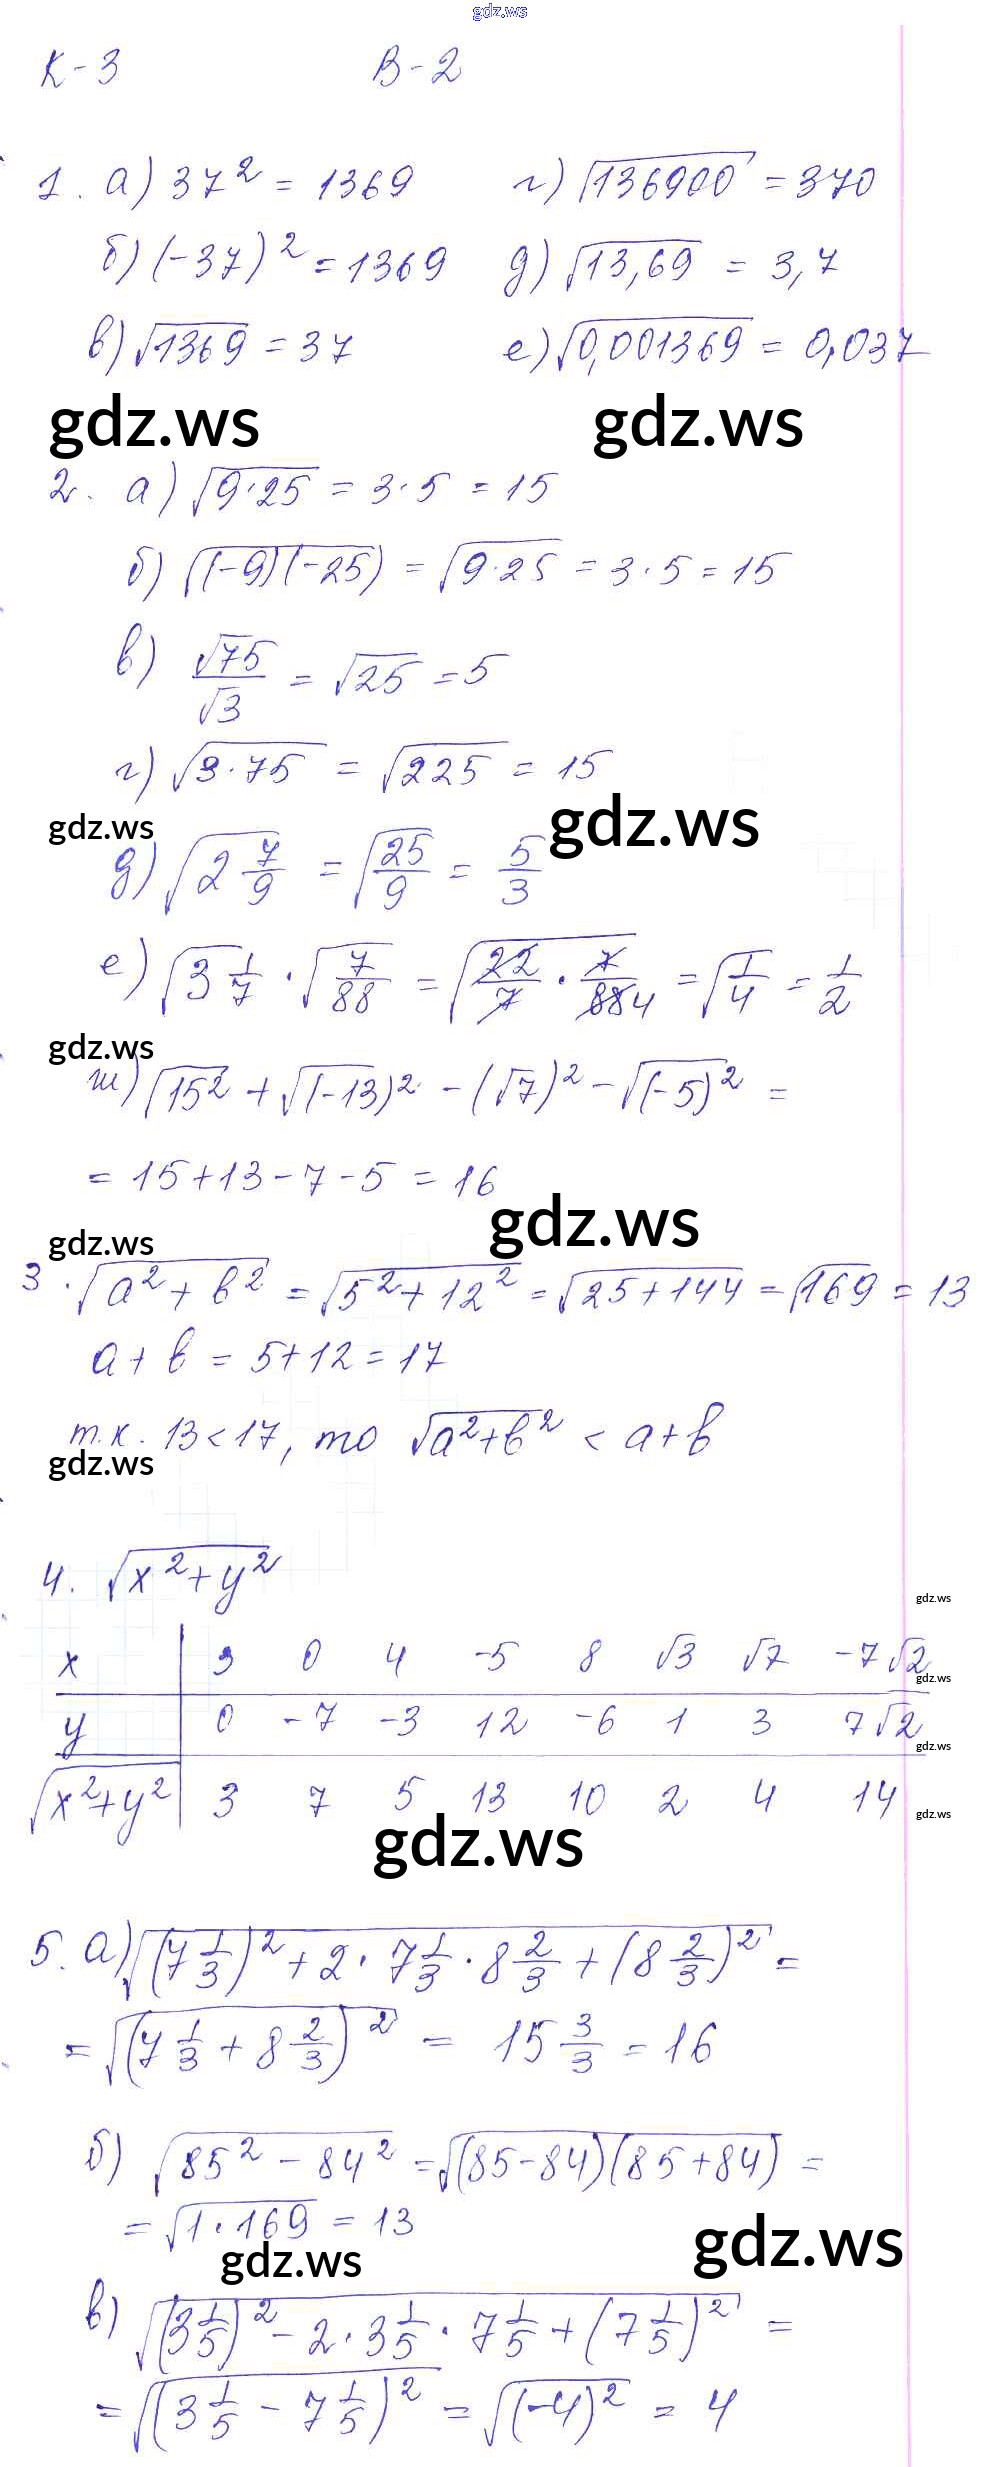 gdz.ws
К-3 В-2
1. а) 37² = 1369 г) √136900 = 370
б) (-37)² = 1369 д) √13,69 = 3,7
в) √1369 = 37 е) √0,001369 = 0,037
gdz.ws gdz.ws
2. а) √9·25 = 3·5 = 15
б) √(-9)(-25) = √9·25 = 3·5 = 15
в) √75/√3 = √25 = 5
г) √3·75 = √225 = 15
gdz.ws gdz.ws
д) √2 7/9 = √25/9 = 5/3
е) √3 1/7 · √7/88 = √22/7 · 7/88 4 = √1/4 = 1/2
gdz.ws
ж) √15² + √(-13)² - (√7)² - √(-5)² =
= 15+13-7-5 = 16
gdz.ws
gdz.ws
3. √a²+b² = √5²+12² = √25+144 = √169 = 13
a+b = 5+12 = 17
т.к. 13<17, то √a²+b² < a+b
gdz.ws
4. √x²+y²
gdz.ws
x 3 0 4 -5 8 √3 √7 -7√2
gdz.ws
y 0 -7 -3 12 -6 1 3 7√2
gdz.ws
√x²+y² 3 7 5 13 10 2 4 14
gdz.ws
gdz.ws
5. а) √(7 1/3)² + 2·7 1/3·8 2/3 + (8 2/3)² =
= √(7 1/3 + 8 2/3)² = 15 3/3 = 16
б) √85² - 84² = √(85-84)(85+84) =
= √1·169 = 13
gdz.ws gdz.ws
в) √(3 1/5)² - 2·3 1/5·7 1/5 + (7 1/5)² =
= √(3 1/5 - 7 1/5)² = √(-4)² = 4